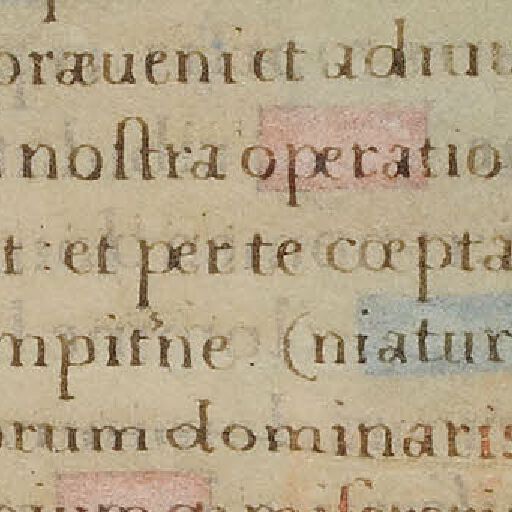 præueni et adiuu
nostra operatio
t: et per te cœpta
mpitne. (niatur
orum dominaris